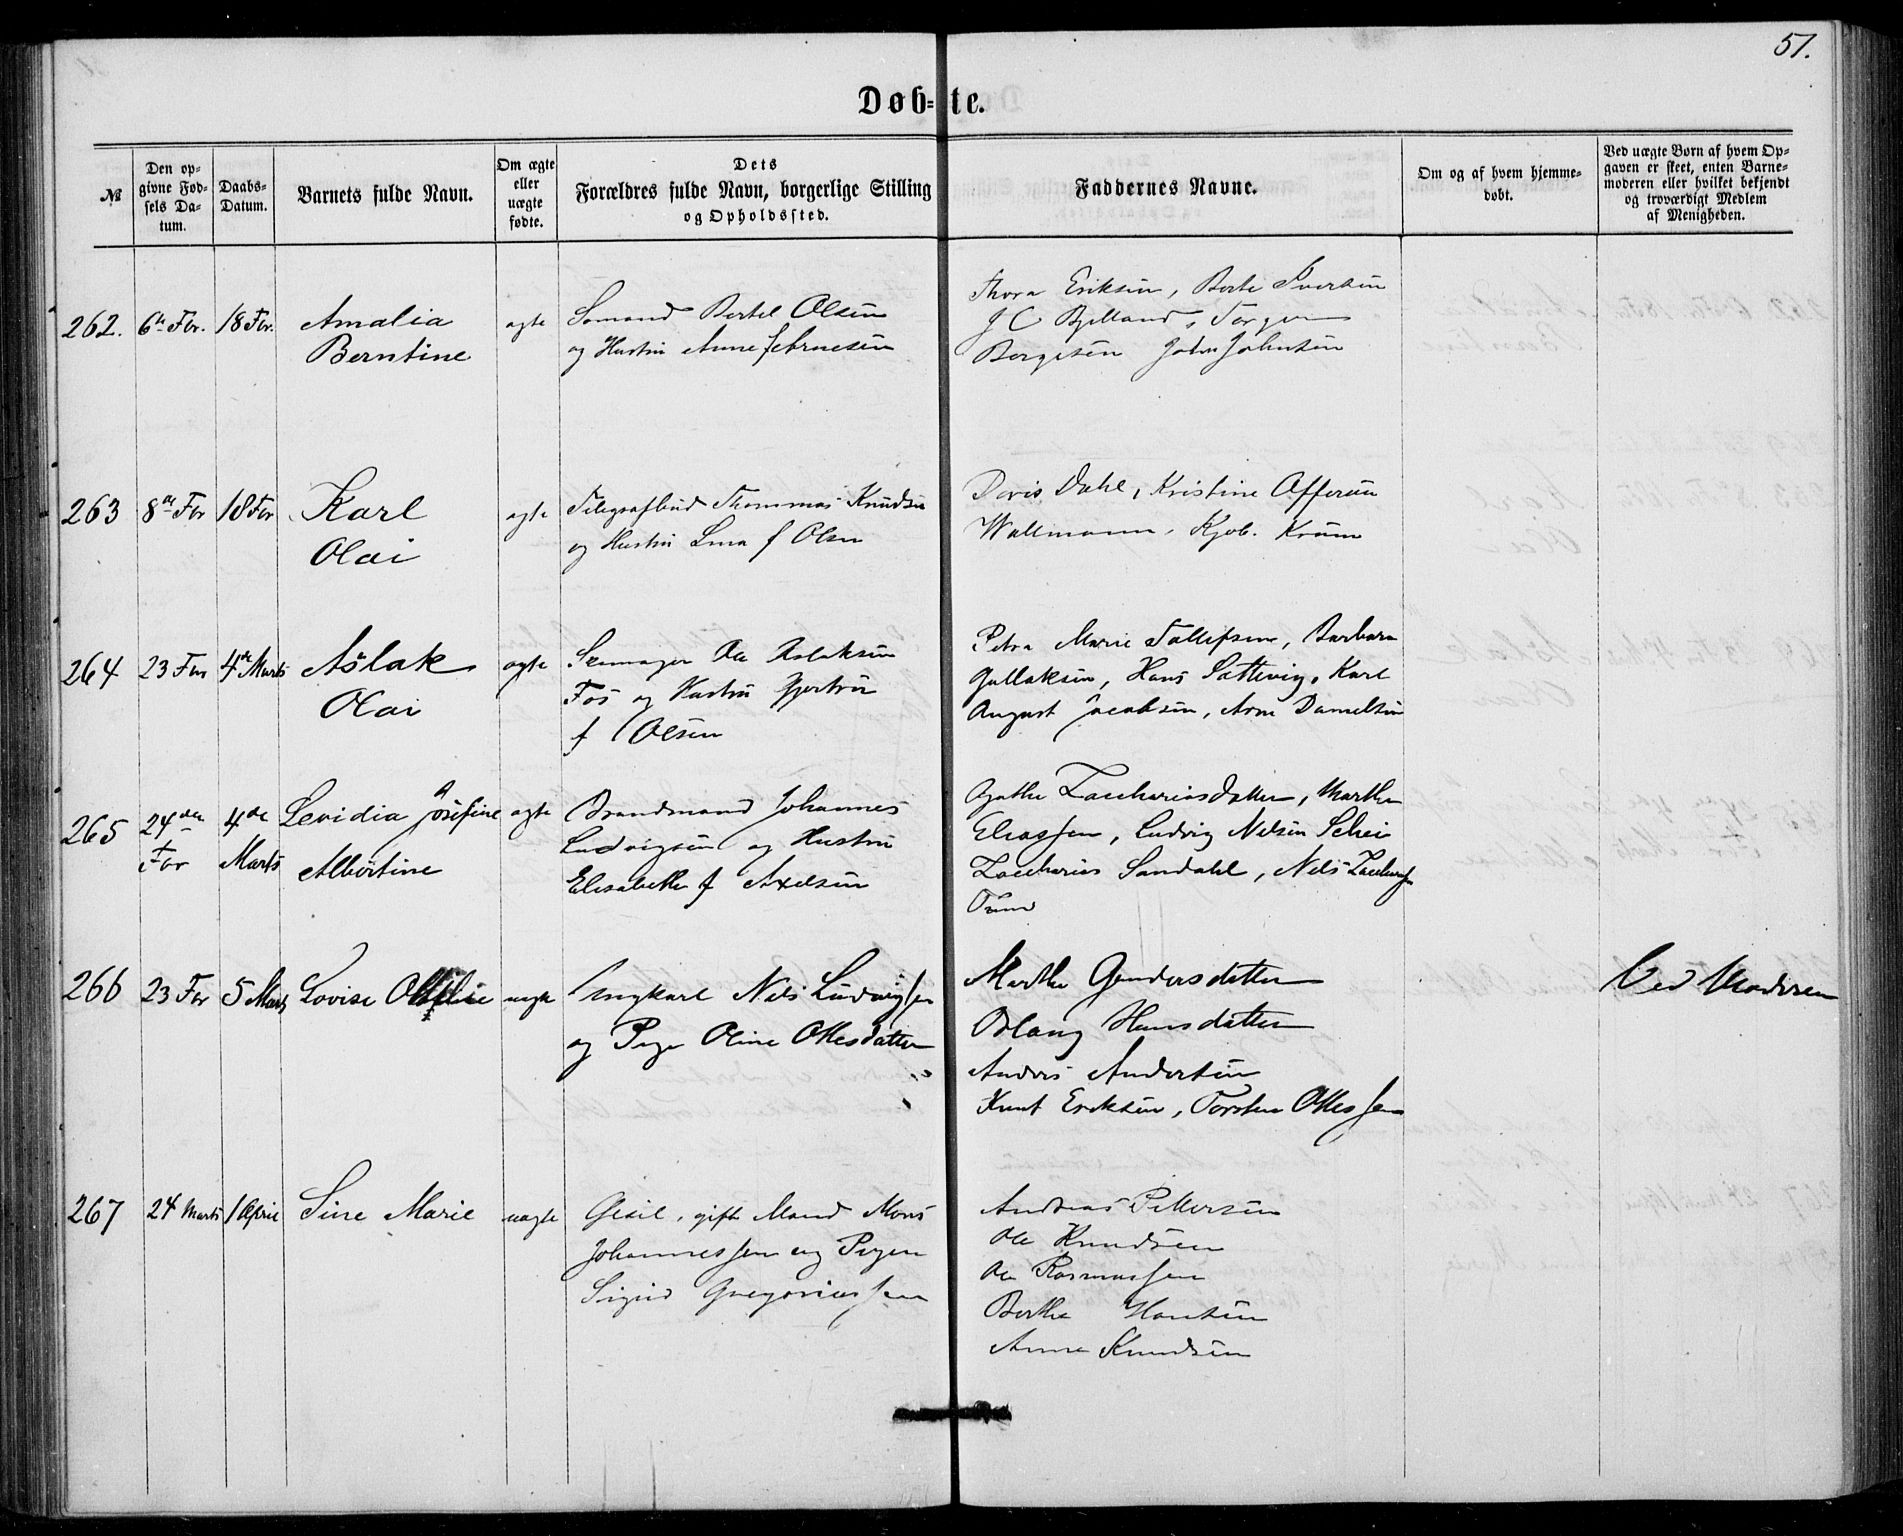 51.
Døb-te.
№
Den op-
givne Fød-
sels Da-
tum.
Daabs-
Datum.
Barnets fulde Navn.
Om ægte
eller
uægte
fødte.
Dets
Forældres fulde Navn, borgerlige Stilling
og Opholdssted.
Faddernes Navne.
Om og af hvem hjemme-
døbt.
Ved uægte Børn af hvem Op-
gaven er skeet, enten Barne-
moderen eller hvilket bekjendt
og troværdigt Medlem
af Menigheden.
262.
6te Febr.
18 Febr.
Amalia
Berntine
ægte
Sømand Bertel Olsen
og Hustru Anne f. Arnesen
Thora Eriksen, Berte Ivertsen
J C Bjelland, Torger
Børgesen John Johnsen
263
8de Febr
18 Febr
Karl
Olai
ægte
Telegrafbud Thommas Knudsen
og Hustru Lina f Olsen
Doris Dahl, Kristine
Wallmann, Kjøb. Krüm
264
23 Febr
4de Marts
Aslak
Olai
ægte
Ole Aslaksen
Fos og Hustru Gjertru
f Olsen
Petra Marie Tollefsen, Barbara
Gullaksen, Hans Sættevig, Karl
August Jacobsen, Arne Danielsen
265
24de
Febr
4de
Marts
Levidia Josefine
Albertine
ægte
Brandmand Johannes
Ludvigsen og Hustru
Elisabeth f Axelsen
Agathe Zacchariasdatter, Marthe
Eliassen, Ludvig Nilsen Schei
Zaccharias Sandahl, Nils
266
23 Febr
5 Marts
Lovise
uægte
Ungkarl Nils Ludvigsen
og Pige Oline Ollesdatter
Marthe Gundersdatter
Oslaug Hansdatter
Anders Andersen
Knut Eriksen, Torsten Ollessen
Ved Moderen
267
24 Marts
1 April
Sine Marie
uægte
gift Mand Mons
Johannessen og Pigen
Sigrid Gregoriussen
Andreas Pettersen
Ole Knudsen
Ole Rasmussen
Berthe Hansen
Anne Knudsen